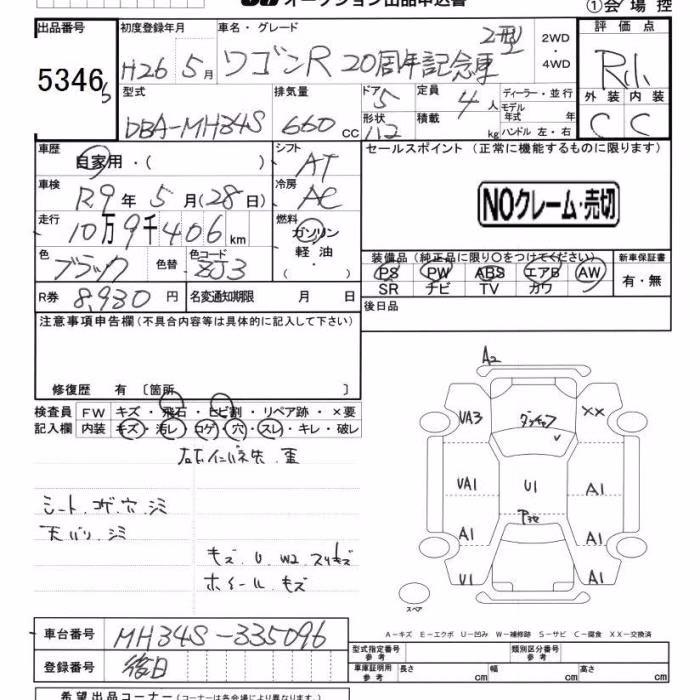 オークション出品申込書
①会場控
出品番号
5346
初度登録年月
H26 5月
車名・グレード
ワゴンR 20周年記念車 2型
2WD・4WD
評価点
R小
外装 内装
C C
型式
DBA-MH34S
排気量
660 cc
ドア
5
形状
定員
4人
積載 kg
ディーラー・並行
モデル年式 年式
ハンドル 左・右
車歴
自家用・( )
シフト
AT
車検
R9年5月(28日)
冷房
AC
走行
10万9千406 km
燃料
ガソリン
軽油・
( )
色
ブラック
色替
色コード
ZJ3
R券 8,930円
名変通知期限 月 日
セールスポイント (正常に機能するものに限ります)
NOクレーム・売切
装備品 (純正品に限り○をつけてください)
PS PW ABS エアB AW
SR ナビ TV カワ
新車保証書
有・無
後日品
注意事項申告欄 (不具合内容等は具体的に記入して下さい)
修復歴 有 〔箇所 〕
検査員記入欄
FW キズ・飛石・ヒビ割・リペア跡・×要
内装 キズ・汚レ・コゲ・穴・スレ・キレ・破レ
シート コゲ 穴 シミ
天バリ シミ
キズ U W2 スリキズ
ホイール キズ
A2
VA3
XX
VA1
U1
A1
A1
A1
U1
A1
スペア
A-キズ E-エクボ U-凹み W-補修跡 S-サビ C-腐食 XX-交換済
車台番号 MH34S-335096
登録番号 後日
型式指定番号 参考
類別区分番号 参考
車庫証明用 参考
長さ cm 幅 cm 高さ cm
希望出品コーナー (コーナーは各会場により異なります。)